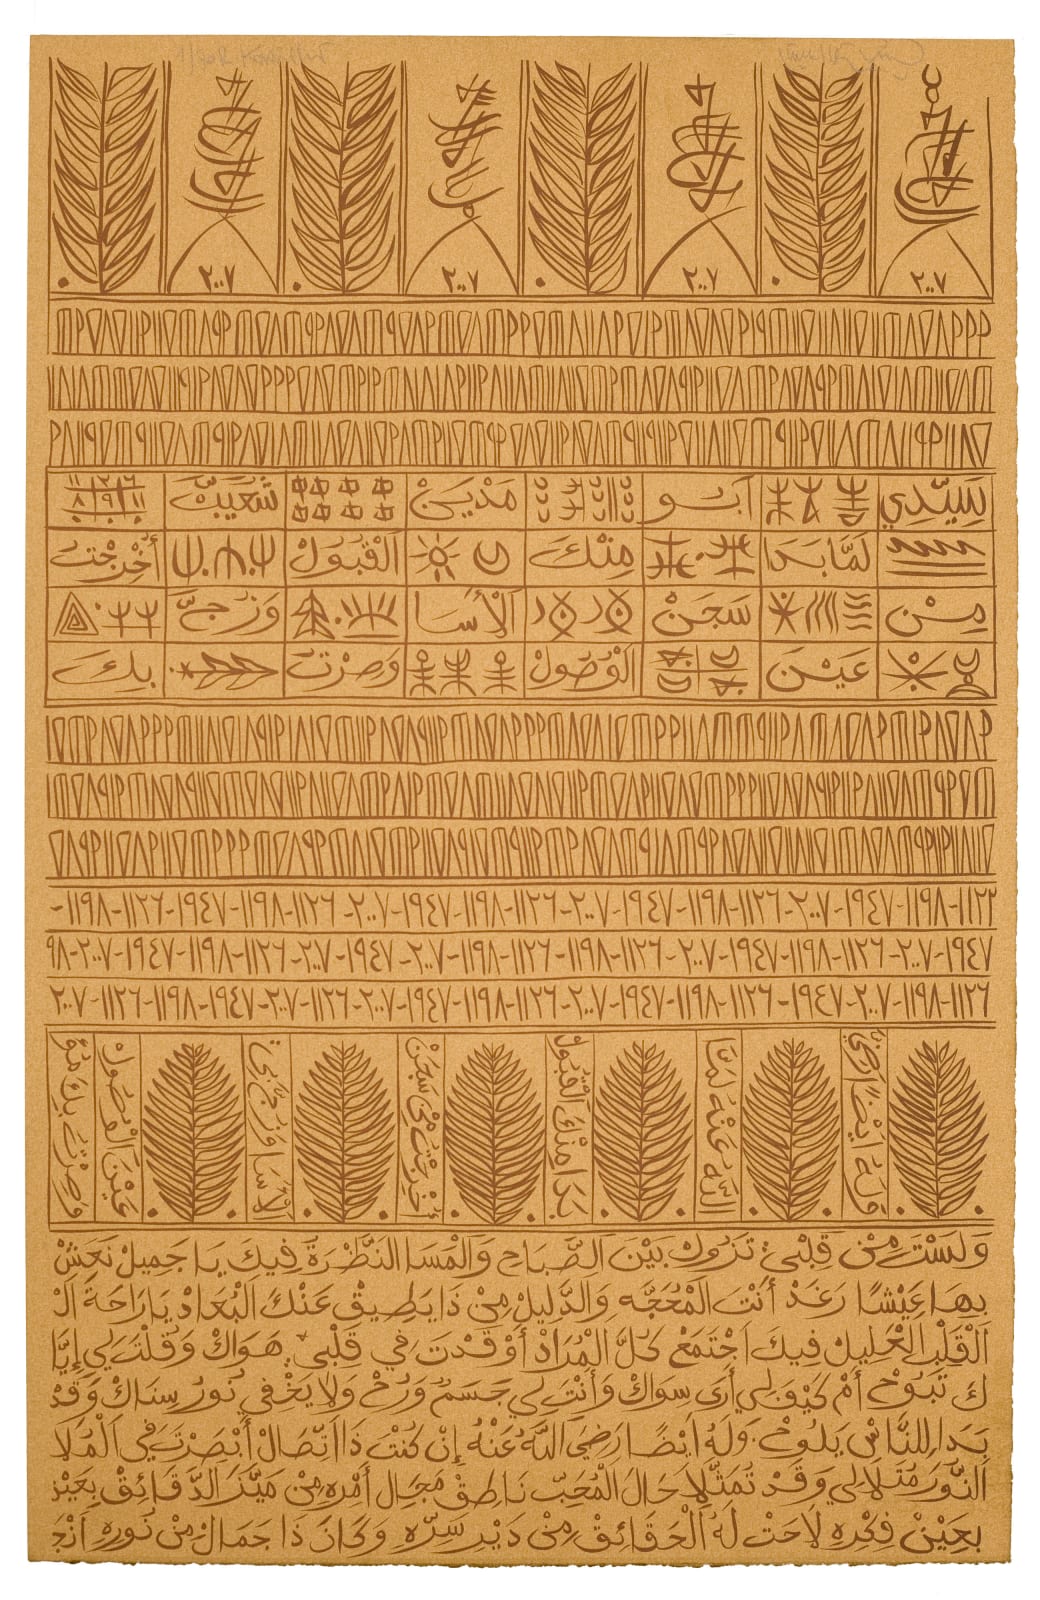 ٢٠٠٧ ٢٠٠٧ ٢٠٠٧ ٢٠٠٧
لِسَيِّدِي أَبُو مَدْيَنْ شُعَيْبْ
لَمَّا بَدَا مِنْكَ الْقَبُولْ أُخْرِجْتُ
مِنْ سَجَنْ الْأَسَا وَزُجَّ
عَيْنَ الْوُصُولْ وَصِرْتُ بِكَ
١١٢٣-١١٩٨-١٩٤٧-٢٠٠٧-١١٢٦-١١٩٨-١٩٤٧-٢٠٠٧-١١٢٦-١١٩٨-١٩٤٧-٢٠٠٧-١١٢٦-١١٩٨-١٩٤٧-١١٢٦-١١٩٨-
١٩٤٧-٢٠٠٧-١١٢٦-١١٩٨-١٩٤٧-٢٠٠٧-١١٢٦-١١٩٨-٢٠٠٧-١٩٤٧-١١٢٦-٢٠٠٧-١٩٤٧-١١٩٨-١١٢٦-٢٠٠٧-٩٨
١١٢٦-١١٩٨-٢٠٠٧-١٩٤٧-١١٢٦-١١٩٨-١٩٤٧-٢٠٠٧-١١٢٦-١١٩٨-١٩٤٧-٢٠٠٧-١١٢٦-٢٠٠٧-١٩٤٧-١١٩٨-١١٢٦-٢٠٠٧
وله أيضا رضي
الله عنه لما
بدا منك القبول
أخرجت من سجن
الأسا وزج بي
عين الوصول
وصرت بك
وَلَسْتَ مِنْ قَلْبِي تَزُولْ بَيْنَ الصَّبَاحِ وَالْمَسَا النَّظْرَةُ فِيكَ يَا جَمِيلْ نَعَشْ
بِهَا عَيْشًا رَغَدْ أَنْتَ الْمُحَجَّه وَالدَّلِيلْ مِنْ ذَا يَطِيقْ عَنْكَ الْبُعَادْ يَا رَاحَةَ الْ
الْقَلْبِ الْعَلِيلْ فِيكَ اجْتَمَعْ كُلَّ الْمُرَادْ أَوْقَدْتَ فِي قَلْبِي هَوَاكْ وَقُلْتَ لِي إِيَّا
كَ تَبُوحْ أَمْ كَيْفَ لِي أَرَى سِوَاكْ وَأَنْتَ لِي جَسَمْ وَرُحْ وَلَا يَخْفِي نُورُ سِنَاكْ وَقَدْ
بَدَا لِلنَّاسْ يَلُوحْ وَلَهُ أَيْضًا رَضِيَ اللَّهُ عَنْهُ إِنْ كُنْتَ ذَا اتِّصَالْ أَبْصَرْتَ فِي الْمَلَا
النُّورَ مُتَلَالِي وَقَدْ تُمَثَّلَا حَالَ الْمُحَبّ نَاطِقْ مَجَالِ أَمْرِهِ مِنْ مَيَّزَ الدَّقَائِقْ بِعَيْنْ
بِعَيْنْ فِكْرِهِ لَاحَتْ لَهُ الْحَقَائِقْ مِنْ دَيْرِ سِرِّهِ وَكَانَ ذَا جَمَالْ مِنْ نُورِهِ